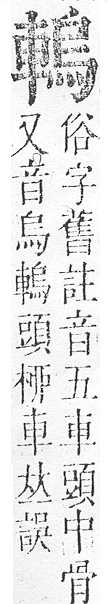 䡧
俗字舊註音五車頭中骨
又音烏䡧頭桺車𠀤誤